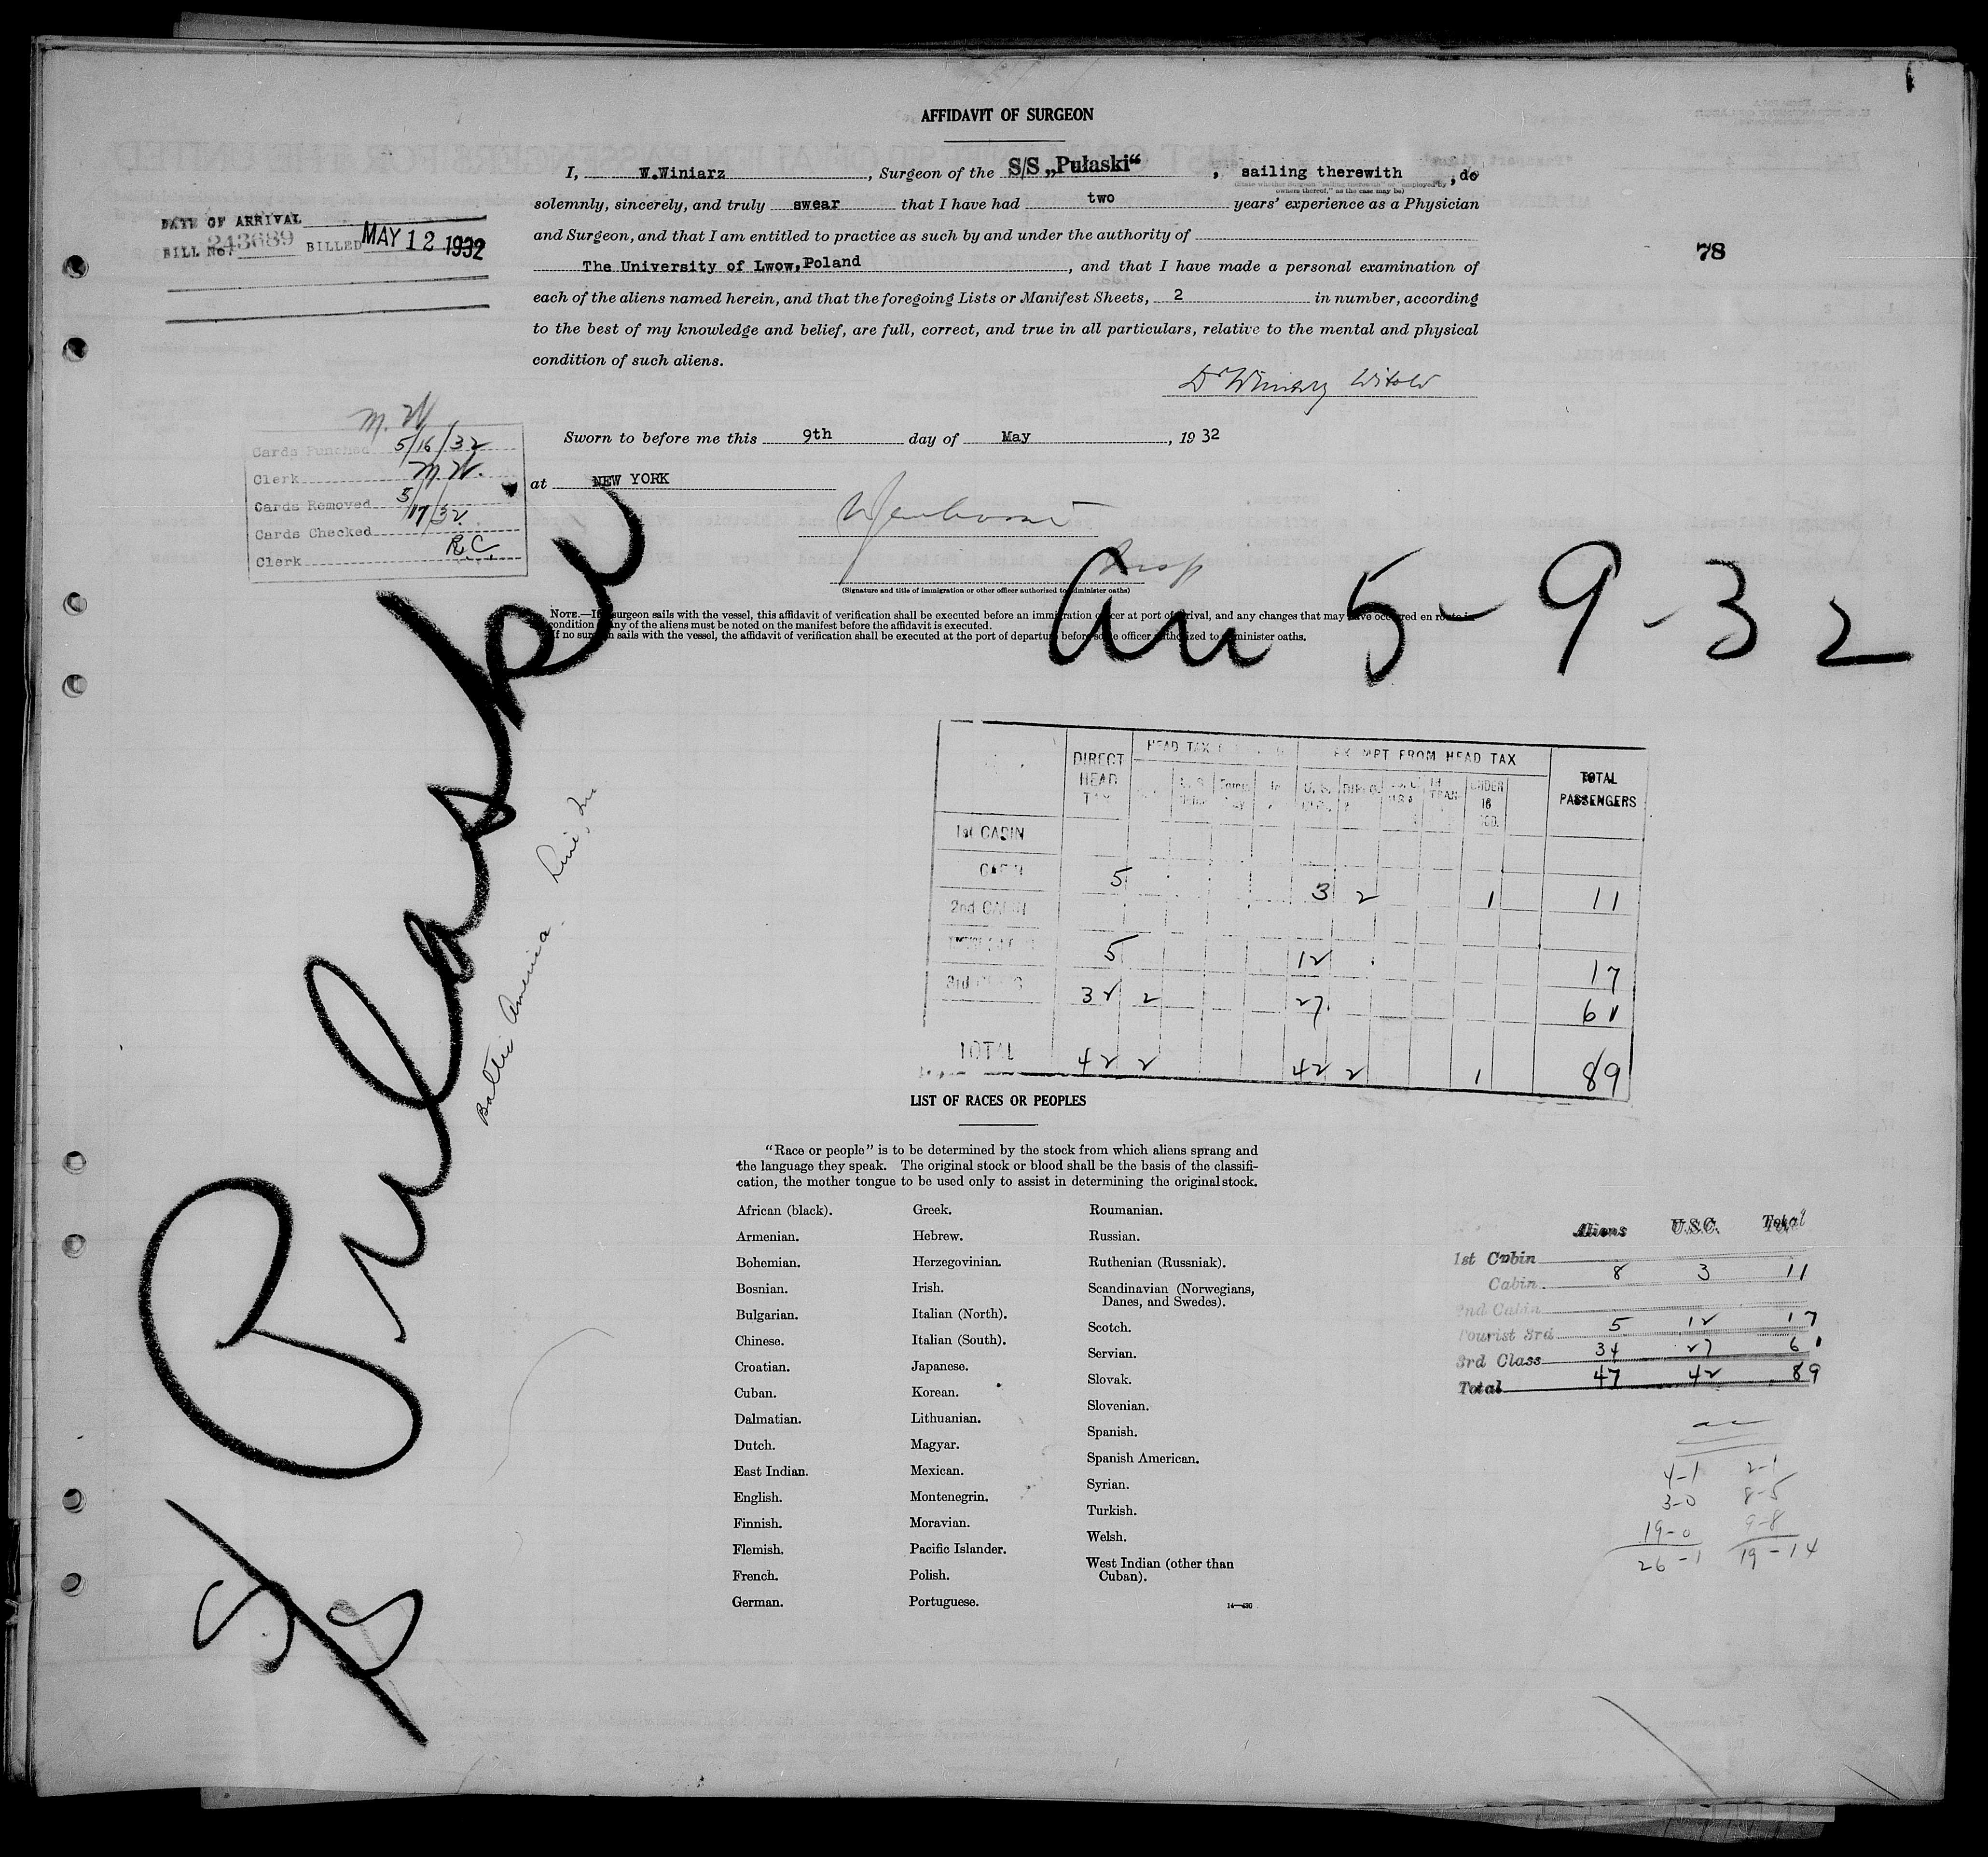 AFFIDAVIT OF SURGEON
I, W.Winiarz, Surgeon of the S/S „Pułaski“, sailing therewith, do
owners thereof," as the case may be)
solemnly, sincerely, and truly swear that I have had two years' experience as a Physician
and Surgeon, and that I am entitled to practice as such by and under the authority of
The University of Lwow, Poland, and that I have made a personal examination of
each of the aliens named herein, and that the foregoing Lists or Manifest Sheets, 2 in number, according
to the best of my knowledge and belief, are full, correct, and true in all particulars, relative to the mental and physical
condition of such aliens.
Witold
Sworn to before me this 9th day of May, 1932
at NEW YORK
Insp
(Signature and title of immigration or other officer authorized to administer oaths)
NOTE.—If surgeon sails with the vessel, this affidavit of verification shall be executed before an immigration officer at port of arrival, and any changes that may have occurred en route in
condition any of the aliens must be noted on the manifest before the affidavit is executed.
If no surgeon sails with the vessel, the affidavit of verification shall be executed at the port of departure before some officer authorized to administer oaths.
DATE OF ARRIVAL
BILL No. 243689 BILLED MAY 12 1932
78
M. W.
Cards Punched 5/16/32
Clerk M. W.
Cards Removed 5/17/32
Cards Checked
Clerk R.C.
S/S Pulaski
Baltic America Line, Inc
Arr 5-9-32
DIRECT HEAD TAX
HEAD TAX
EXEMPT FROM HEAD TAX
UNDER 16
TOTAL PASSENGERS
1st CABIN
CABIN 5 3 2 1 11
2nd CABIN
5 12 17
3rd 32 2 27 61
TOTAL 42 2 42 2 1 89
LIST OF RACES OR PEOPLES
"Race or people" is to be determined by the stock from which aliens sprang and
the language they speak. The original stock or blood shall be the basis of the classifi-
cation, the mother tongue to be used only to assist in determining the original stock.
African (black).
Armenian.
Bohemian.
Bosnian.
Bulgarian.
Chinese.
Croatian.
Cuban.
Dalmatian.
Dutch.
East Indian.
English.
Finnish.
Flemish.
French.
German.
Greek.
Hebrew.
Herzegovinian.
Irish.
Italian (North).
Italian (South).
Japanese.
Korean.
Lithuanian.
Magyar.
Mexican.
Montenegrin.
Moravian.
Pacific Islander.
Polish.
Portuguese.
Roumanian.
Russian.
Ruthenian (Russniak).
Scandinavian (Norwegians,
Danes, and Swedes).
Scotch.
Servian.
Slovak.
Slovenian.
Spanish.
Spanish American.
Syrian.
Turkish.
Welsh.
West Indian (other than
Cuban).
14—436
Aliens U.S.C. Total
1st Cabin
Cabin 8 3 11
2nd Cabin
Tourist 3rd 5 12 17
3rd Class 34 27 61
Total 47 42 89
4-1 2-1
3-0 8-5
19-0 9-8
26-1 19-14